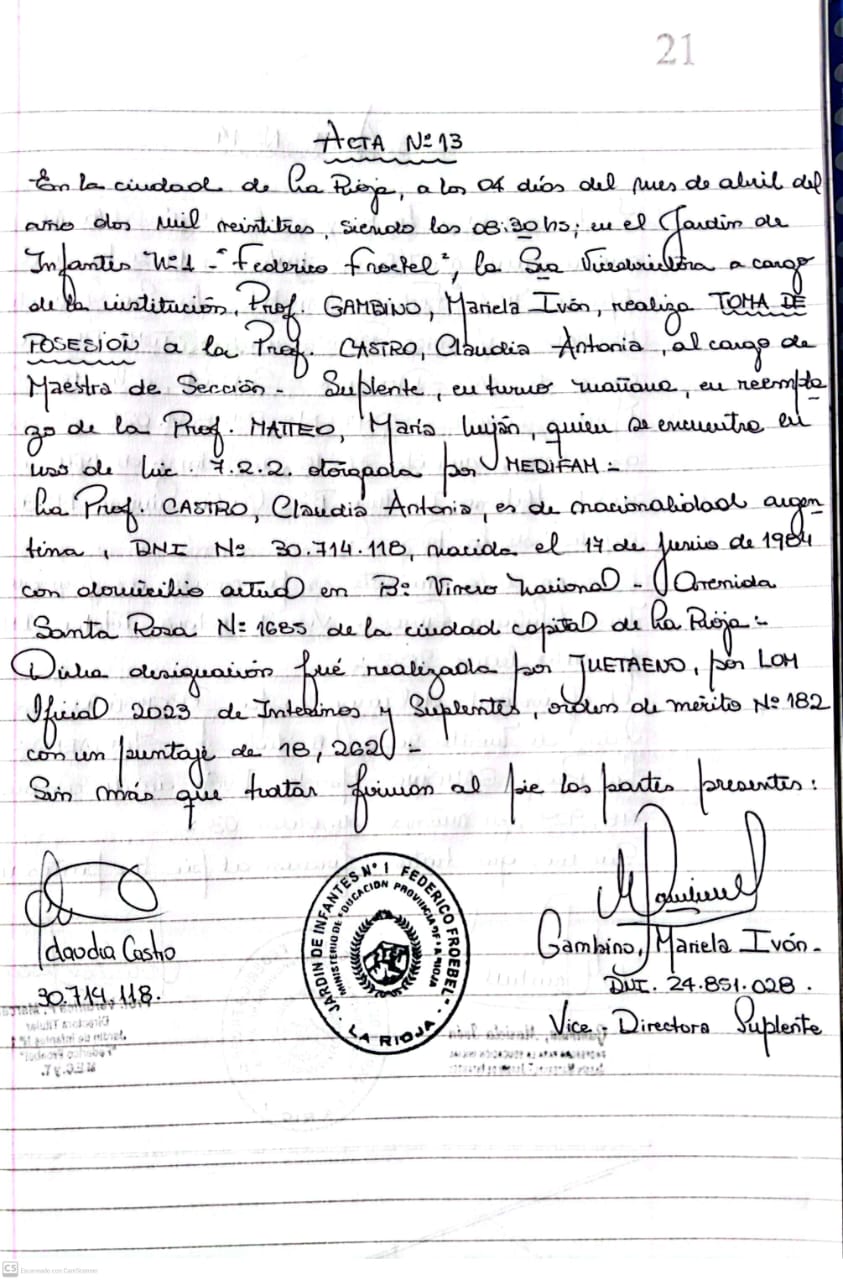 21
ACTA Nº 13
En la ciudad de La Rioja, a los 04 días del mes de abril del
año dos mil veintitres, siendo las 08:30 hs; en el Jardín de
Infantes "Nº 1 - "Federico Froebel", la Sra Vicedirectora a cargo
de la institución, Prof. GAMBINO, Mariela Ivón, realiza TOMA DE
POSESION a la Prof. CASTRO, Claudia Antonia, al cargo de
Maestra de Sección - Suplente, en turno mañana, en reempla
zo de la Prof. MATTEO, María Luján, quien se encuentra en
uso de Lic. 7.2.2. otorgada por MEDIFAM -
La Prof. CASTRO, Claudia Antonia, es de nacionalidad argen
tina, DNI Nº 30.714.118, nacida el 17 de Junio de 1984
con domicilio actual en Bº Vivero Nacional - Avenida
Santa Rosa Nº 1685 de la ciudad capital de La Rioja -
Dicha designación fué realizada por JUETAENO, por LOM
Oficial 2023 de Interinos y Suplentes, orden de mérito Nº 182
con un puntaje de 18,262 -
Sin más que tratar firman al pie las partes presentes:
Claudia Castro
30.714.118.
JARDIN DE INFANTES Nº 1 FEDERICO FROEBEL
MINISTERIO DE EDUCACION PROVINCIA DE LA RIOJA
LA RIOJA
Gambino, Mariela Ivón -
DNI. 24.851.028.
Vice-Directora Suplente
CS Escaneado con CamScanner